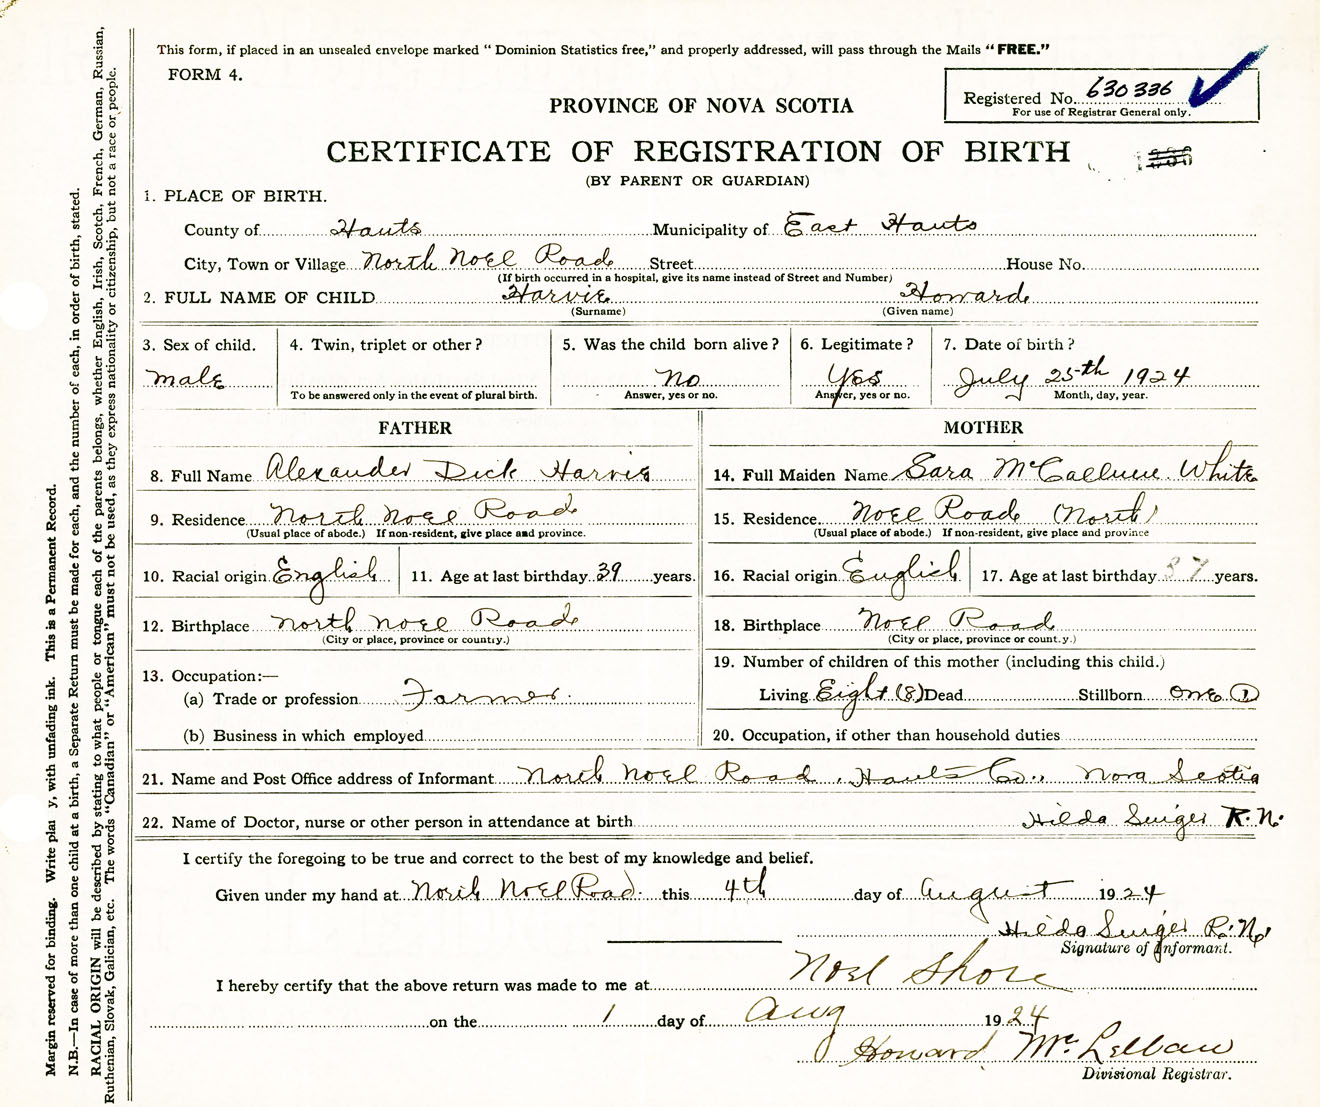 This form, if placed in an unsealed envelope marked " Dominion Statistics free," and properly addressed, will pass through the Mails " FREE."
FORM 4.
Registered No. 630336
For use of Registrar General only.
PROVINCE OF NOVA SCOTIA
CERTIFICATE OF REGISTRATION OF BIRTH
(BY PARENT OR GUARDIAN)
1. PLACE OF BIRTH.
County of Hants Municipality of East Hants
City, Town or Village North Noel Road Street House No.
(If birth occurred in a hospital, give its name instead of Street and Number)
2. FULL NAME OF CHILD Harvie Howard
(Surname) (Given name)
3. Sex of child. 4. Twin, triplet or other? 5. Was the child born alive? 6. Legitimate? 7. Date of birth?
male No Yes July 25th 1924
To be answered only in the event of plural birth. Answer, yes or no. Answer, yes or no. Month, day, year.
FATHER MOTHER
8. Full Name Alexander Dick Harvie 14. Full Maiden Name Sara McCallum White
9. Residence North Noel Road 15. Residence. Noel Road (North)
(Usual place of abode.) If non-resident, give place and province. (Usual place of abode.) If non-resident, give place and province
10. Racial origin English 11. Age at last birthday 39 years. 16. Racial origin English 17. Age at last birthday 37 years.
12. Birthplace North Noel Road 18. Birthplace Noel Road
(City or place, province or country.) (City or place, province or count.y.)
13. Occupation:— 19. Number of children of this mother (including this child.)
(a) Trade or profession Farmer. Living Eight (8) Dead Stillborn one 1
(b) Business in which employed 20. Occupation, if other than household duties
21. Name and Post Office address of Informant North Noel Road, Hants Co., Nova Scotia
22. Name of Doctor, nurse or other person in attendance at birth Hilda R.N.
I certify the foregoing to be true and correct to the best of my knowledge and belief.
Given under my hand at North Noel Road. this 4th day of August 1924
Hilda R.N.
Signature of Informant.
I hereby certify that the above return was made to me at Noel Shore
on the 1 day of Aug 1924
Howard McLellan
Divisional Registrar.
Margin reserved for binding. Write plai y, with unfading ink. This is a Permanent Record.
N.B.—In case of more than one child at a birth, a Separate Return must be made for each, and the number of each, in order of birth, stated.
RACIAL ORIGIN will be described by stating to what people or tongue each of the parents belongs, whether English, Irish, Scotch, French, German, Russian,
Ruthenian, Slovak, Galician, etc. The words "Canadian" or "American" must not be used, as they express nationality or citizenship, but not a race or people.